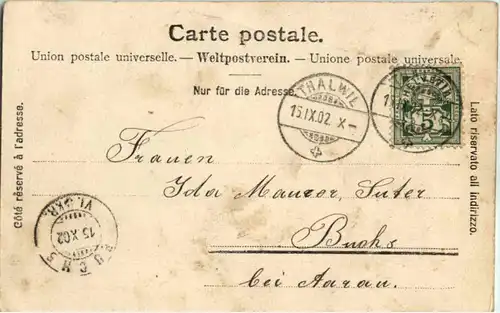 Carte postale.
Union postale universelle. — Weltpostverein. — Unione postale universale.
Nur für die Adresse.
THALWIL
15.IX.02. X–
5
Côté réservé à l'adresse.
Lato riservato all indirizzo.
Frauen
Ida Maurer, Suter
Buchs
bei Aarau.
BUCHS
15.X.02